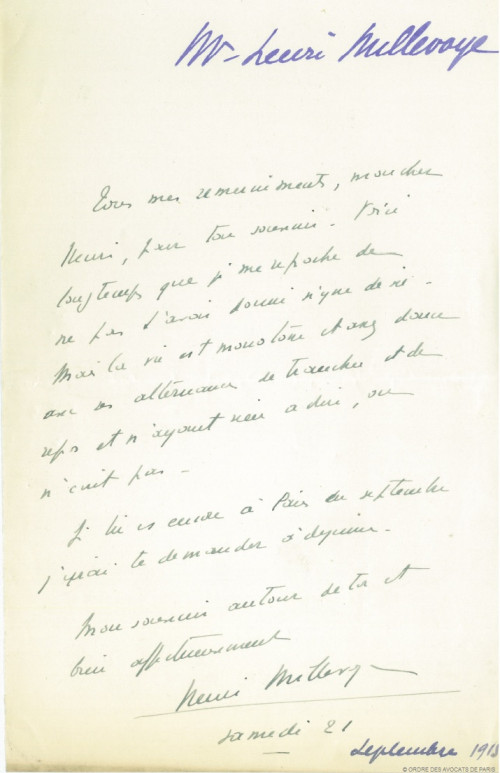 Mr Henri Millevoye
Tous mes remerciments, mon cher
Henri, pour ton souvenir. Voici
longtemps que je me reproche de
ne pas t'avoir donné signe de vie.
Mais la vie est monotone et assez douce
avec ses alternances de tranchées et de
repos et n'ayant rien à dire, on
n'écrit pas.
Si tu es encore à Paris en septembre
j'irai te demander à déjeuner.
Mon souvenir autour de toi et
bien affectueusement
Henri Millevoye
samedi 21
Septembre 1915
© ORDRE DES AVOCATS DE PARIS